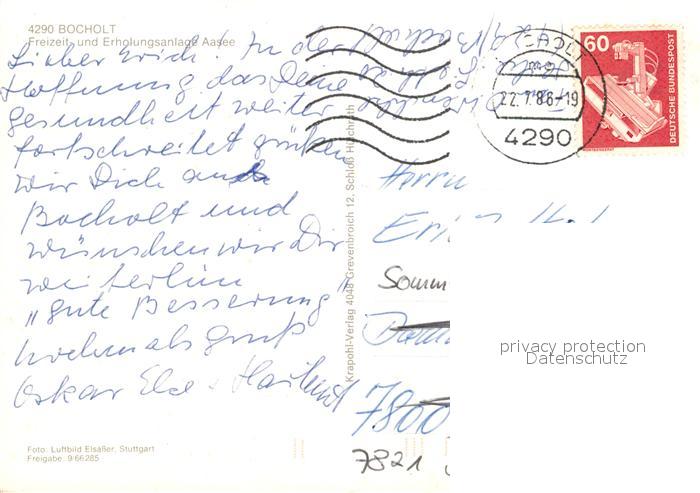 4290 BOCHOLT
Freizeit- und Erholungsanlage Aasee
Lieber Erich! In der
Hoffnung das Deine
Gesundheit weiter
fortschreitet grüßen
wir Dich aus
Bocholt und
wünschen wir Dir
weiterhin
"gute Besserung"
nochmals gruß
Oskar Else
Foto: Luftbild Elsäßer, Stuttgart
Freigabe: 9/66285
Krapohl-Verlag 4048 Grevenbroich 12, Schloß Hülchrath
22.7.86-19
4290
60
DEUTSCHE BUNDESPOST
Herrn
Somm
7800
7821
privacy protection
Datenschutz